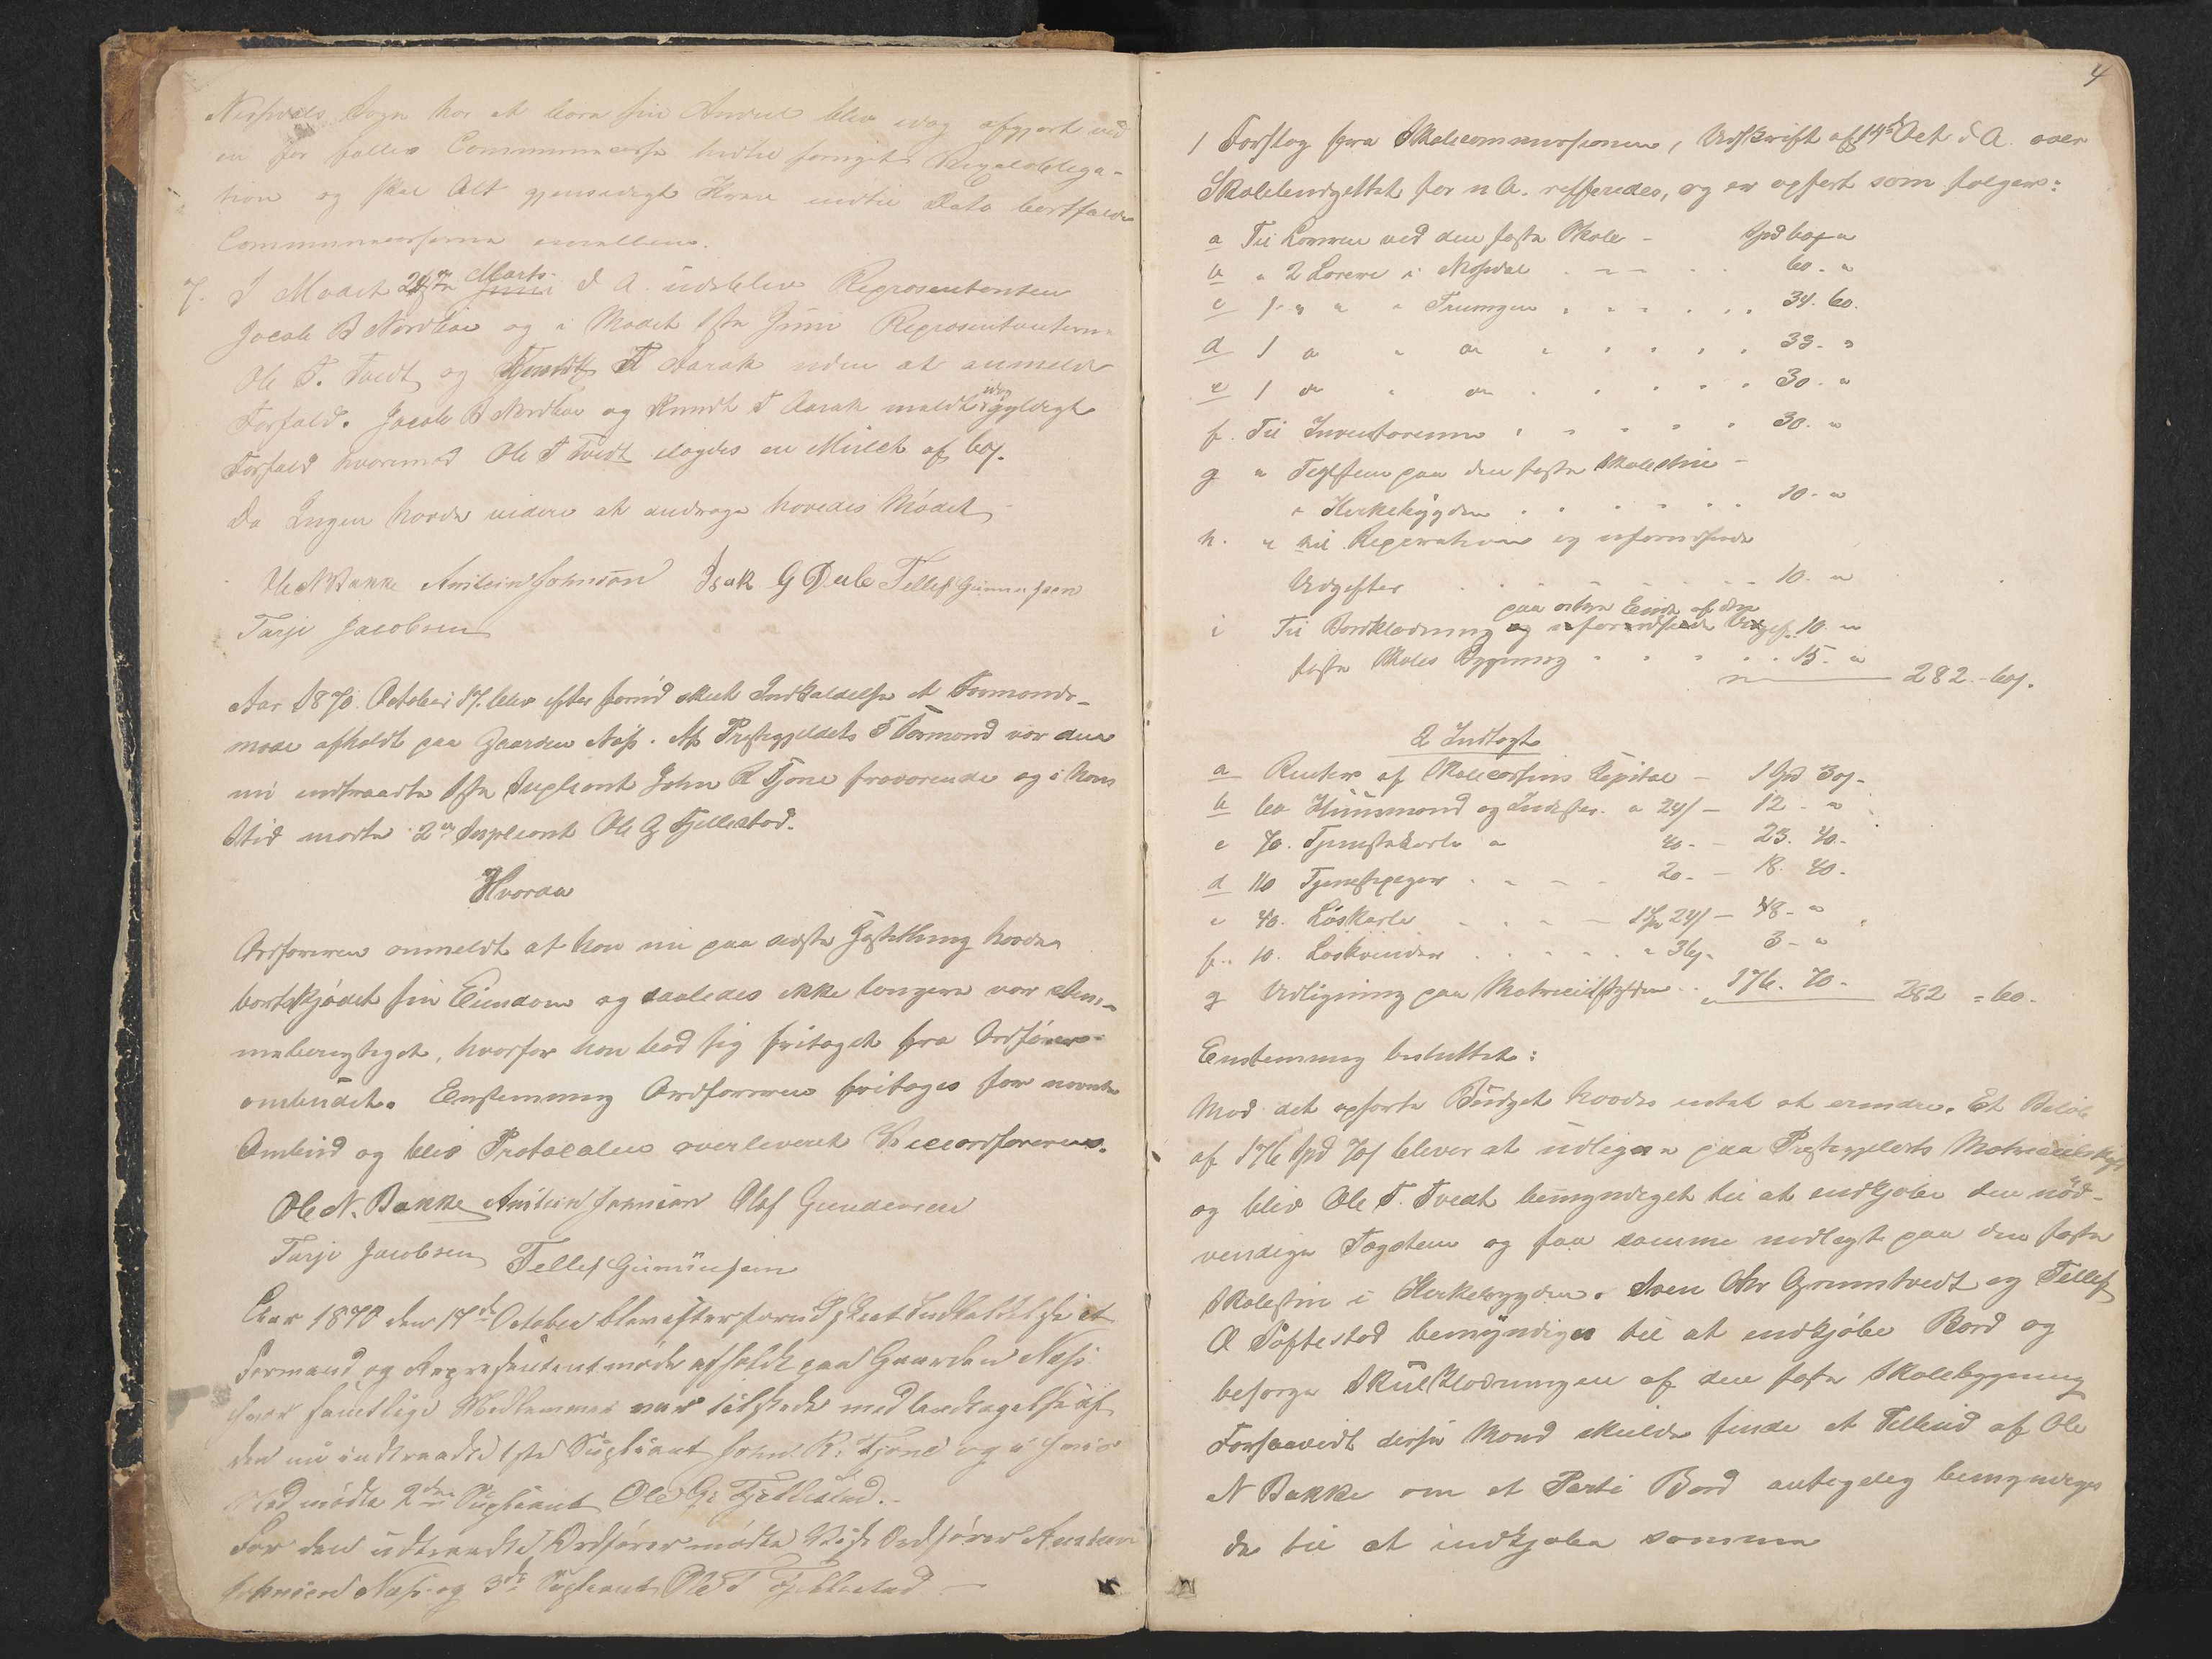 Nissedals Sogn har at bære sin Andeel blev idag afgjort ved
en for fælles Communecasse hidtil foregst
tion og skal Alt gjensidigt Krav indtil Dato bortfalde
Communecasserne imellem.
7. I Mødet 24de Marts d A. udeblev Repræsentanten
Jacob B Nordbø og i Mødet 1ste Juni Repræsentanterne
Ole T. Tvedt og T Aarak uden at anmelde
Forfald. Jacob B Nordbø og Knudt T Aarak meldte idag gyldigt
Forfald hvorimod Ole T Tvedt ilagdes en Mulct af 60 s.
Da Ingen havde videre at andrage hævedes Mødet
Ole N Bakke Anstein Johnsøn Isak G Dale Tellef Gunnufsen
Tarje Jacobsen
Aar 1870 October 17. blev efter forud skeet Indkaldelse et Formands-
møde afholdt paa Gaarden Næs. Af Præstegjeldets 5 Formænd var den
nu indtraadte 1ste Supleant John R Tjone fraværende og i hans
Sted mødte 2den Supleant Ole G Fjellestad.
Hvorda
Ordføreren anmeldte at han nu paa sidste Høstething havde
bortskjødet sin Eiendom og saaledes ikke længere var stem-
meberigtiget, hvorfor han bad sig fritaget fra Ordfører-
ombudet. Enstemmig Ordføreren fritages for nævnte
Ombud og blev Protocolen overleveret Viceordføreren.
Ole N. Bakke Anstein Johnsøn Olaf Gundersen
Tarje Jacobsen Tellef Gunnufsen
Aar 1870 den 17de October blev efter forud skeet Indkaldelse et
Formand og Repræsentantmøde afholdt paa Gaarden Næs
hvor samtlige Medlemmer var tilstede med Undtagelse af
den nu indtraadte 1ste Supleant John R. Tjone og i hans
Sted mødte 2den Supleant Ole G. Fjellestad.
For den udtraadte Ordfører mødte Vice Ordfører Anstein
Johnsen Næs og 3die Supleant Ole T Fjellestad
4
1 Forslag fra Skolecommissionen, Udskrift af 14de Oct d A. over
Skolebudgettet for n A. refferedes, og er opført som følger:
a Til Læreren ved den faste Skole - Spd 60 "
b " 2 Lærere i Nissedal 60. "
c 1 " " " Treungen 34. 60.
d 1 " " " 33. "
e 1 " " " 30. "
f. Til Inventarium 30. "
g " Teglsteen paa den faste Skolestue
i Kirkebygden 10. "
h. " til Reperation og uforudseede
Udgifter 10. "
paa østre Ende af den
i Til Bordklædning og uforudseede Udgif. 10. "
faste Skoles Bygning 15. " 282 - 60 s.
2 Indtægt
a Renter af Skolecassens Capital - 1 Spd 30 s.
b 60 Huusmænd og Inderster a 24 s - 12 - "
c 70. Tjenestekarle a 40. - 23. 40.
d 110 Tjenestepiger 20. - 18. 40.
e 40. Løskarle 1 Spd 24 s - 48 - "
f. 10. Løskvinder " 36 s. 3 - "
g Udligning paa Matriculskylden 176. 70. 282 = 60.
Enstemmig besluttet:
Mod det opførte Budget havdes intet at erindre. Et Beløb
af 176 Spd 70 s bliver at udligne paa Præstegjeldets Matriculskyld
og blev Ole T. Tvedt bemyndiget til at indkjøbe den nød-
vendige Tagsteen og faa samme nedlagt paa den faste
Skolestue i Kirkebygden. Sven Chr Grunstvedt og Tellef
O Toftestad bemyndiges til at indkjøbe Bord og
besørge Skulklædningen af den faste Skolebygning
Forsaavidt disse Mænd skulde finde et Tilbud af Ole
N Bakke om et Parti Bord antageleg bemyndiges
de til at indkjøbe samme